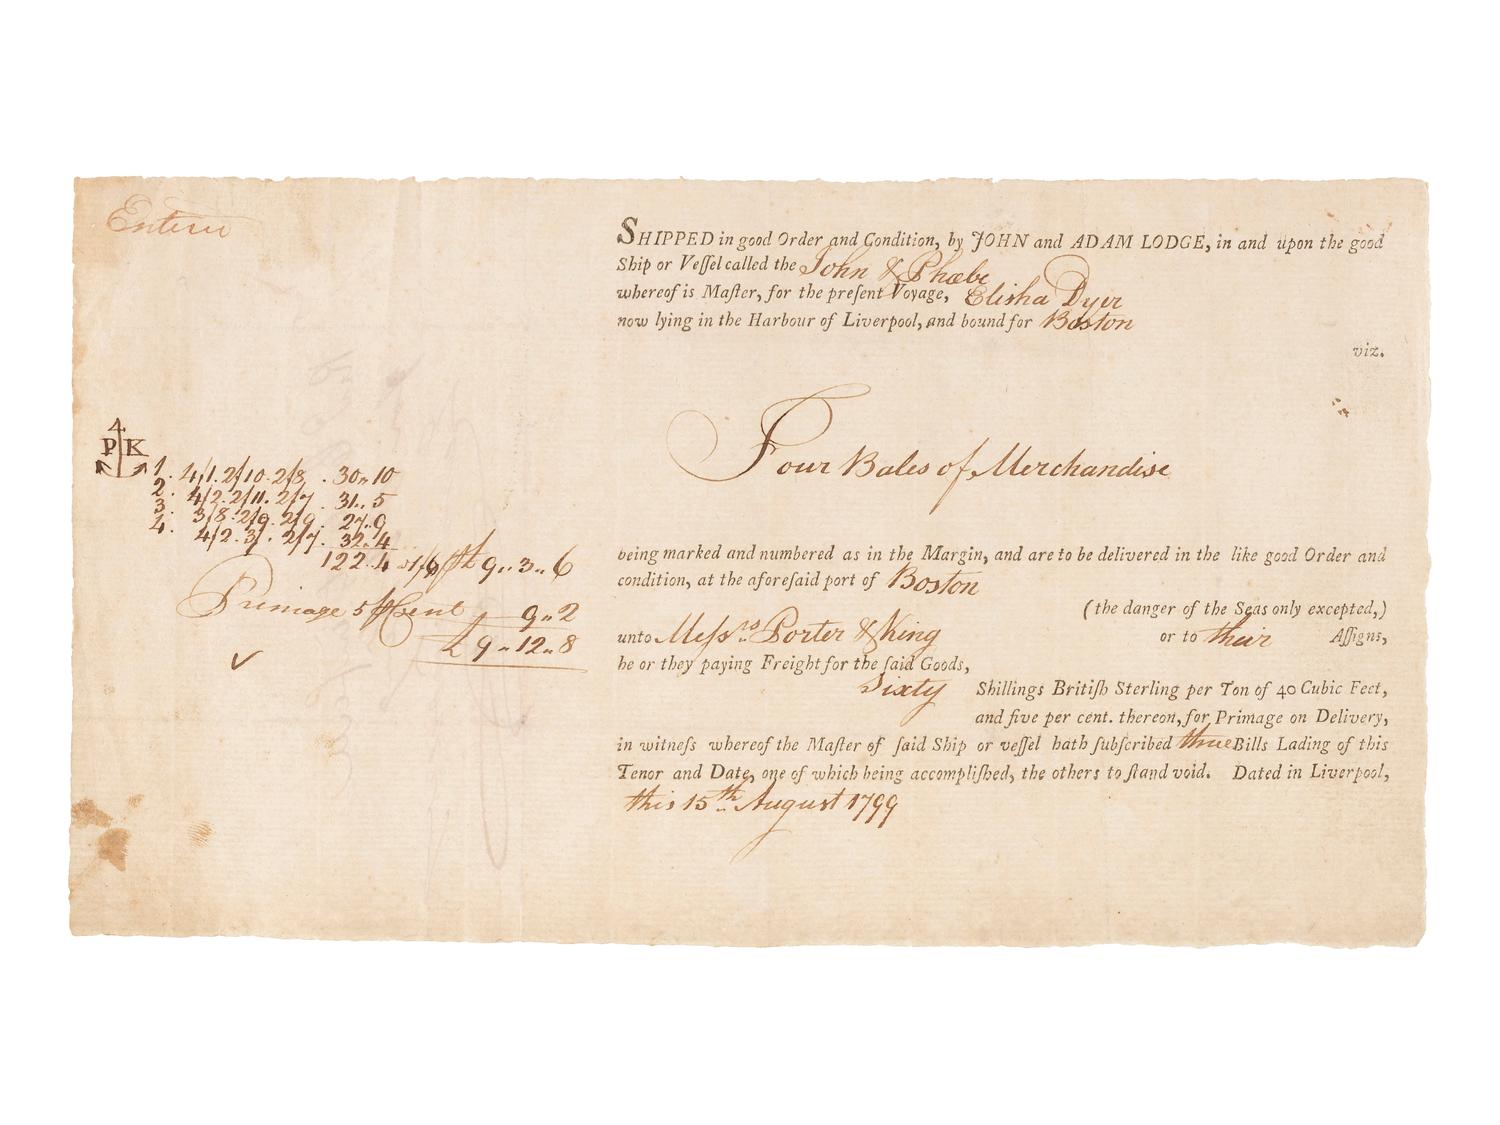 Enterd
SHIPPED in good Order and Condition, by JOHN and ADAM LODGE, in and upon the good
Ship or Veſſel called the John & Phœbe
whereof is Maſter, for the preſent Voyage, Elisha Dyer
now lying in the Harbour of Liverpool, and bound for Boston
viz.
Four Bales of Merchandise
4
P K
1. 4/1. 2/10. 2/8. 30,, 10
2. 4/2. 2/11. 2/7. 31,, 5
3. 3/8. 2/9. 2/9. 27,, 9
4. 4/2. 3/. 2/7. 32,, 4
122.. 4 at 1/6 £ 9,, 3,, 6
Primage 5 ⅌ Cent 9,, 2
£ 9,, 12,, 8
being marked and numbered as in the Margin, and are to be delivered in the like good Order and
condition, at the aforeſaid port of Boston
(the danger of the Seas only excepted,)
unto Meſsrs Porter & King or to their Aſſigns,
he or they paying Freight for the ſaid Goods,
Sixty Shillings Britiſh Sterling per Ton of 40 Cubic Feet,
and five per cent. thereon, for Primage on Delivery,
in witneſs whereof the Maſter of ſaid Ship or veſſel hath ſubſcribed three Bills Lading of this
Tenor and Date, one of which being accompliſhed, the others to ſtand void. Dated in Liverpool,
this 15th August 1799